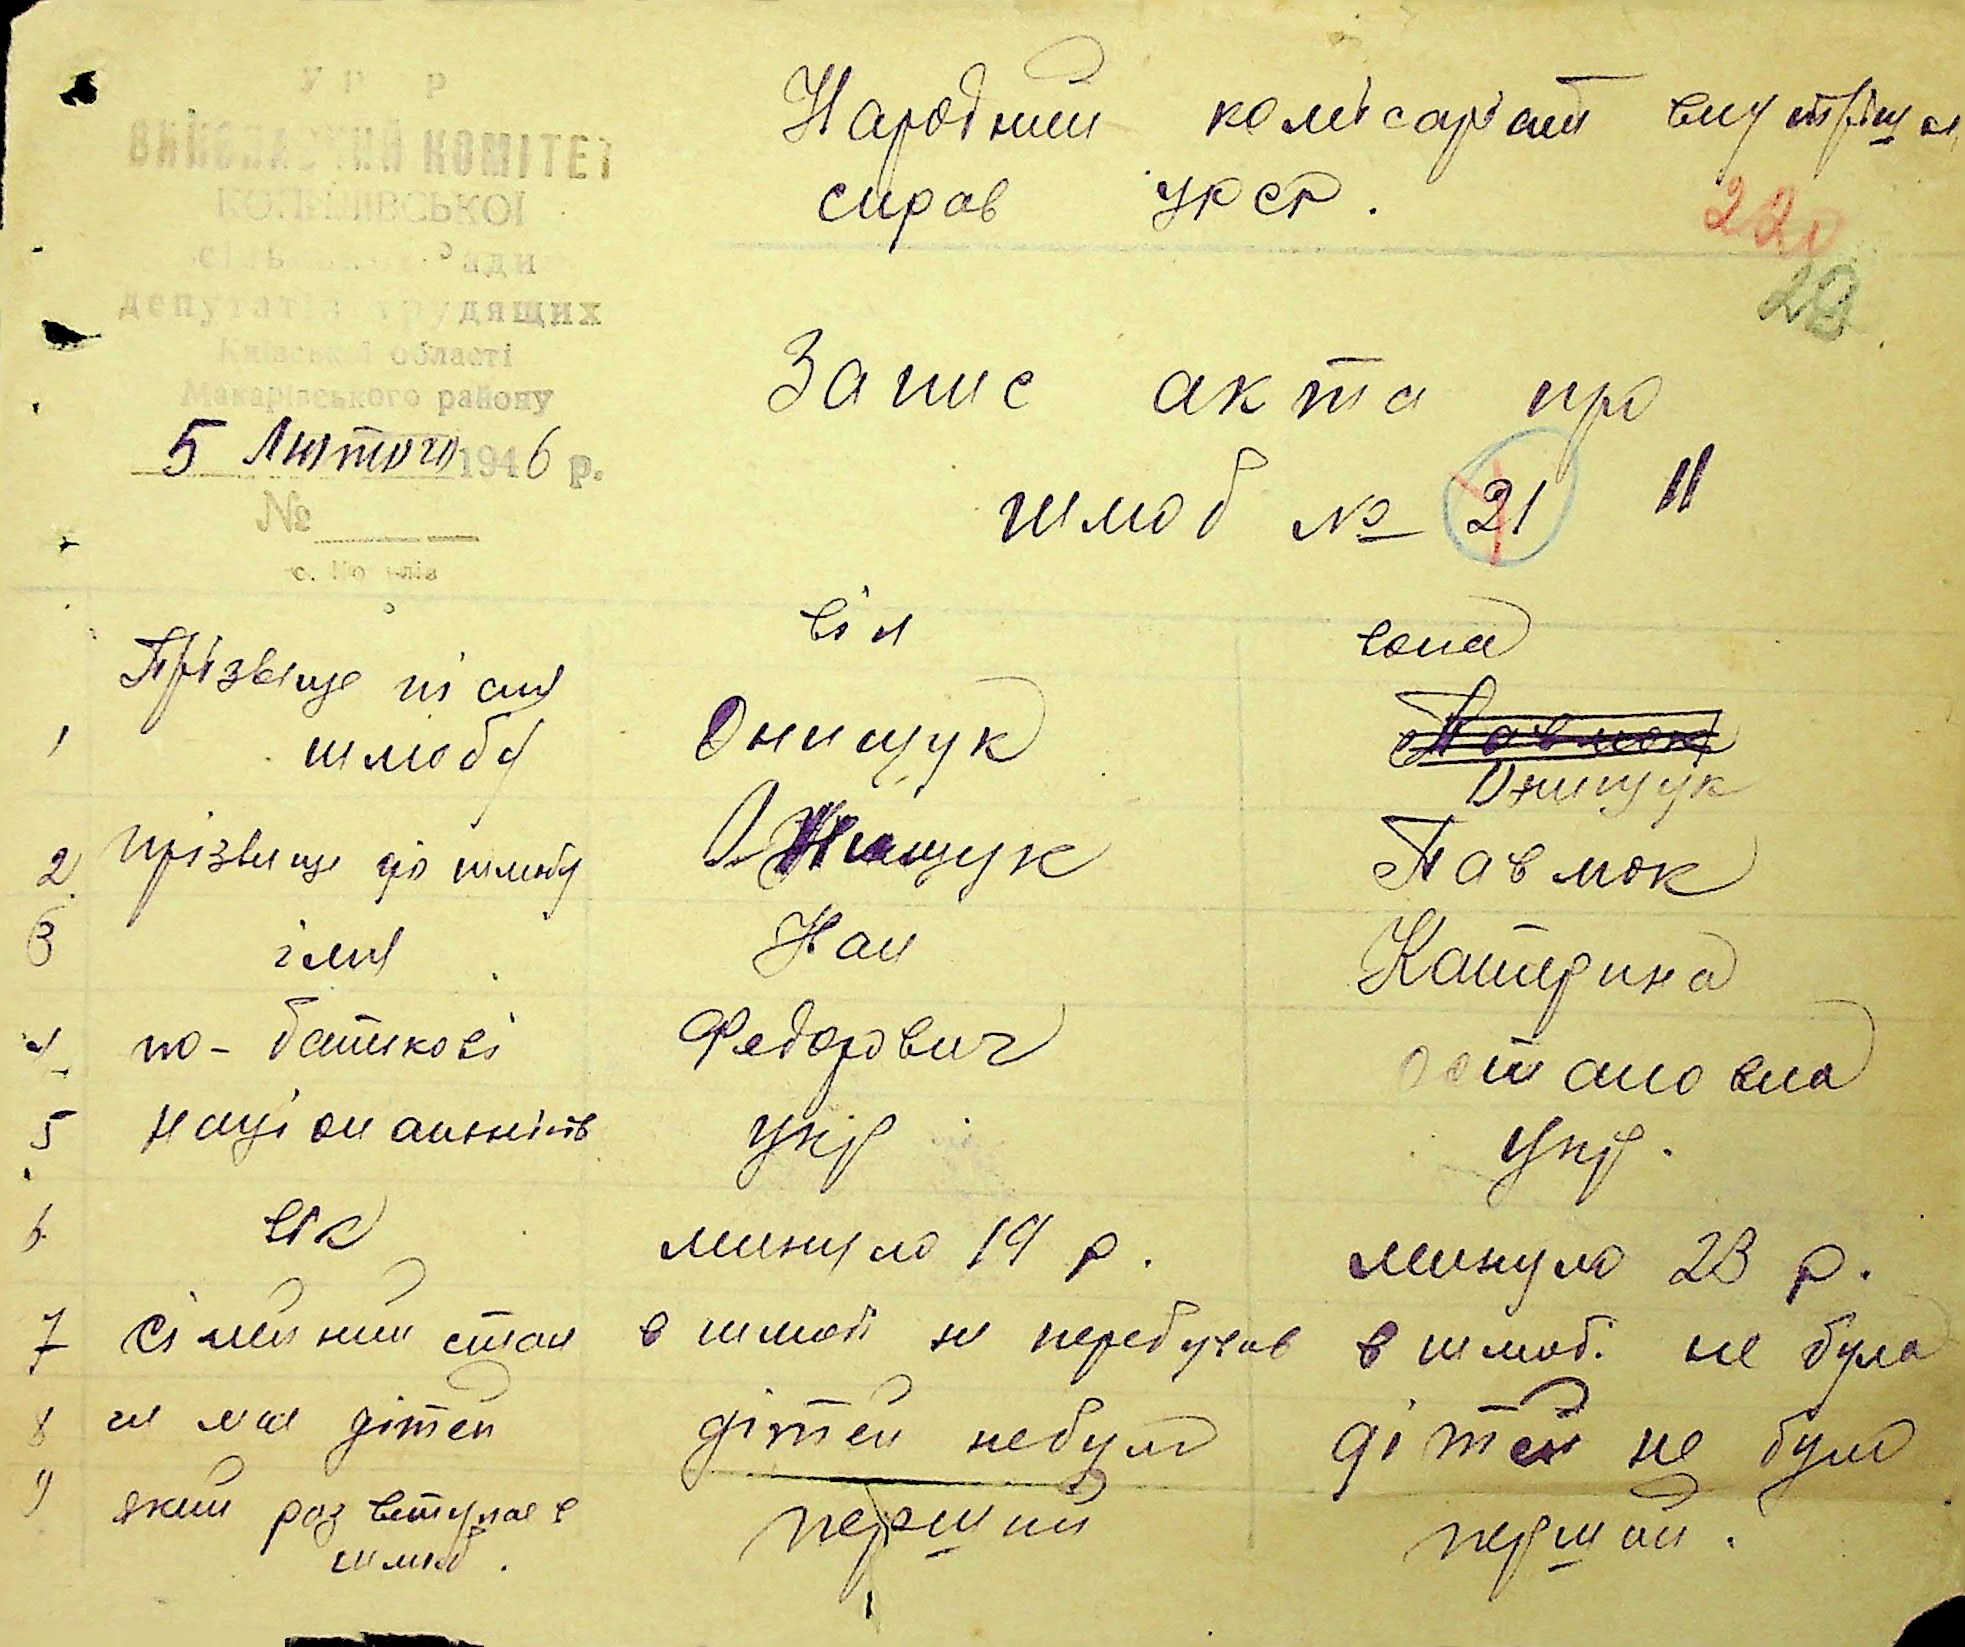 У Р Р
ВИКОНАВЧИЙ КОМІТЕТ
сільської Ради
депутатів трудящих
Київської області
Макарівського району
5 Лютого 1946 р.
№
Народний комісаріат внутрішн
справ УРСР.
220
28
Запис акта про
шлюб № 21 11
він вона
1 Прізвище після шлюбу Онищук Павлюк
Онищук
2 прізвище до шлюбу Онищук Павлюк
3 імя Іван Катирина
4 по-батькові Федорович остаповна
5 націоналність укр укр.
6 вік минуло 19 р. минуло 23 р.
7 сімейний стан в шлюбі не перебував в шлюбі не була
8 чи має дітей дітей небуло дітей не було
9 який раз вступає в перший перший.
шлюб.